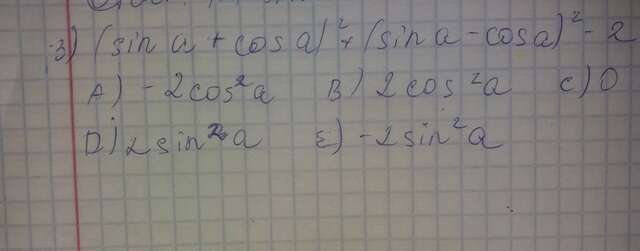 3) (sin a + cos a)² + (sin a - cos a)² - 2
A) - 2cos²a B) 2 cos²a C) 0
D) 2 sin²a E) - 2 sin²a